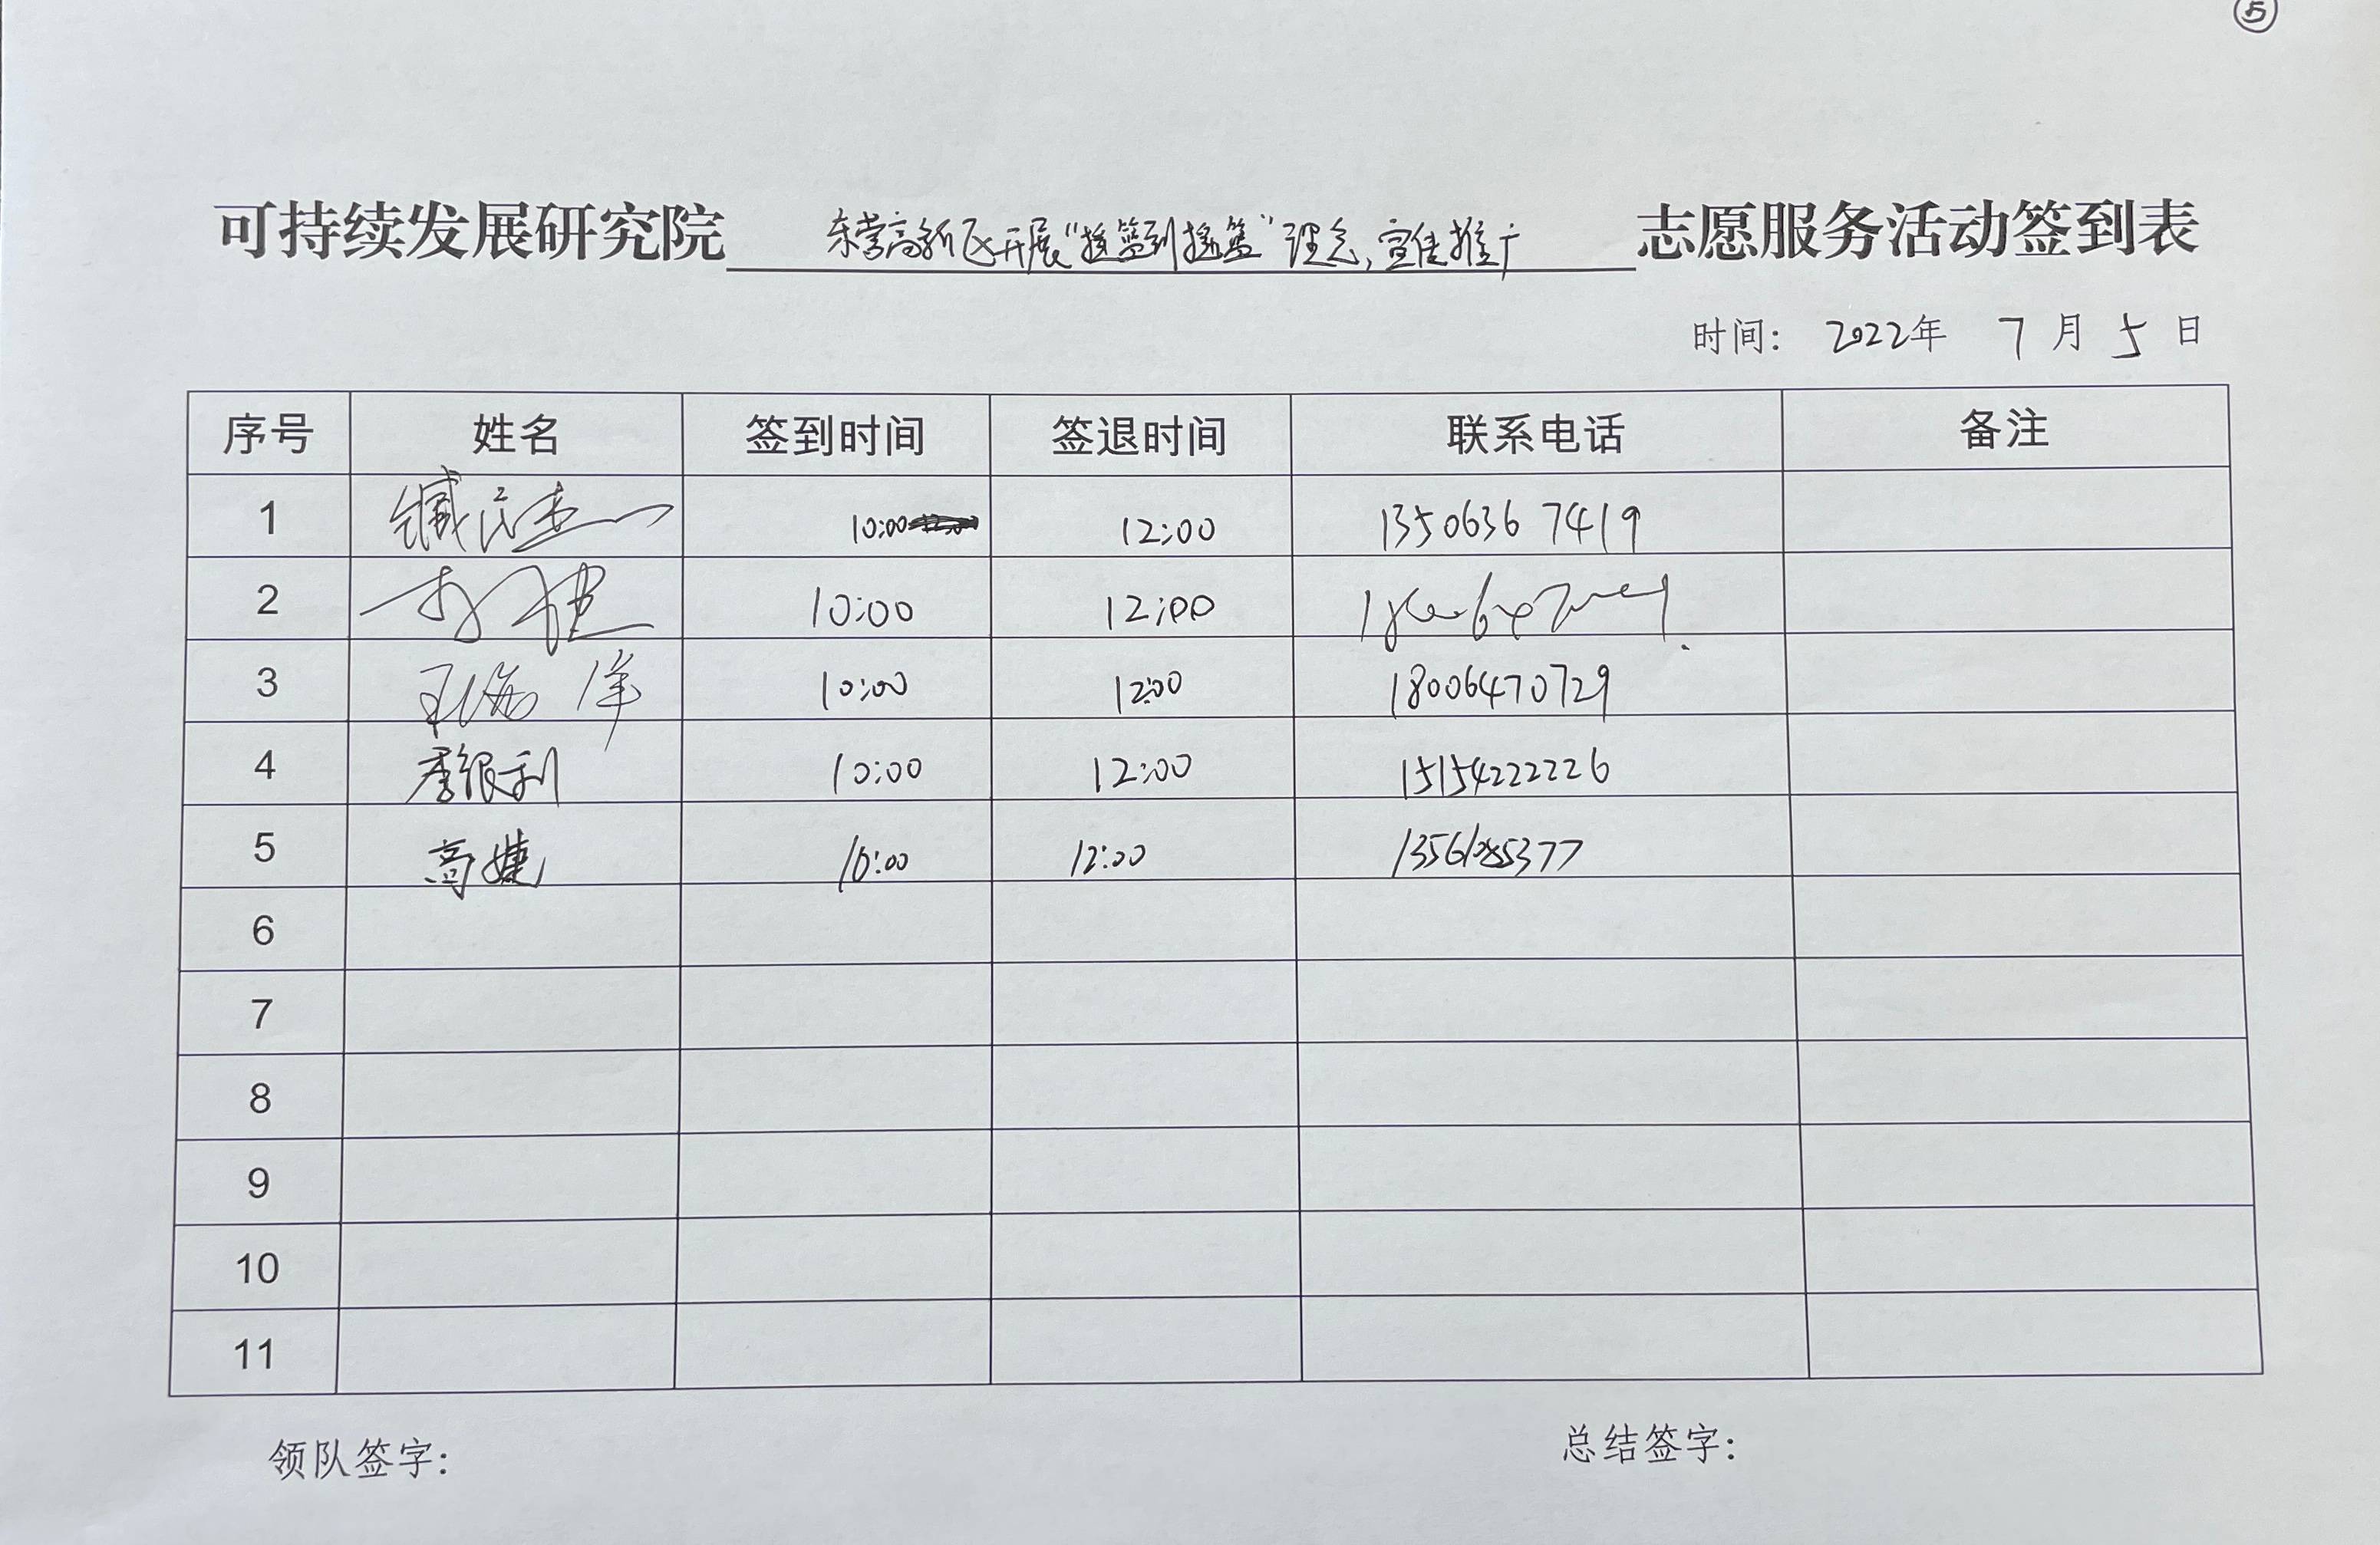 ⑤
可持续发展研究院 东营高新区开展“摇篮到摇篮”理念,宣传推广 志愿服务活动签到表
时间: 2022年 7月5日
序号 姓名 签到时间 签退时间 联系电话 备注
1 臧 10:00 12:00 13506367419
2 10:00 12:00
3 王海洋 10:00 12:00 18006470729
4 季银利 10:00 12:00 15154222226
5 高婕 10:00 12:00
6
7
8
9
10
11
领队签字: 总结签字: